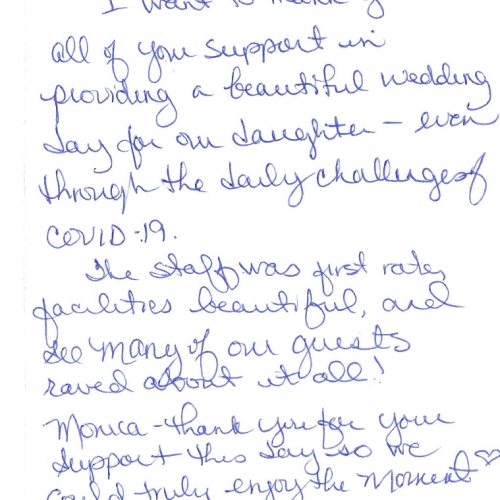 I want to thank y
all of your support in
providing a beautiful wedding
day for our daughter - even
through the daily challenges of
COVID-19.
The staff was first rate,
facilities beautiful, and
many of our guests
raved about it all!
Monica - thank you for your
support this day so we
could truly enjoy the moment ♡